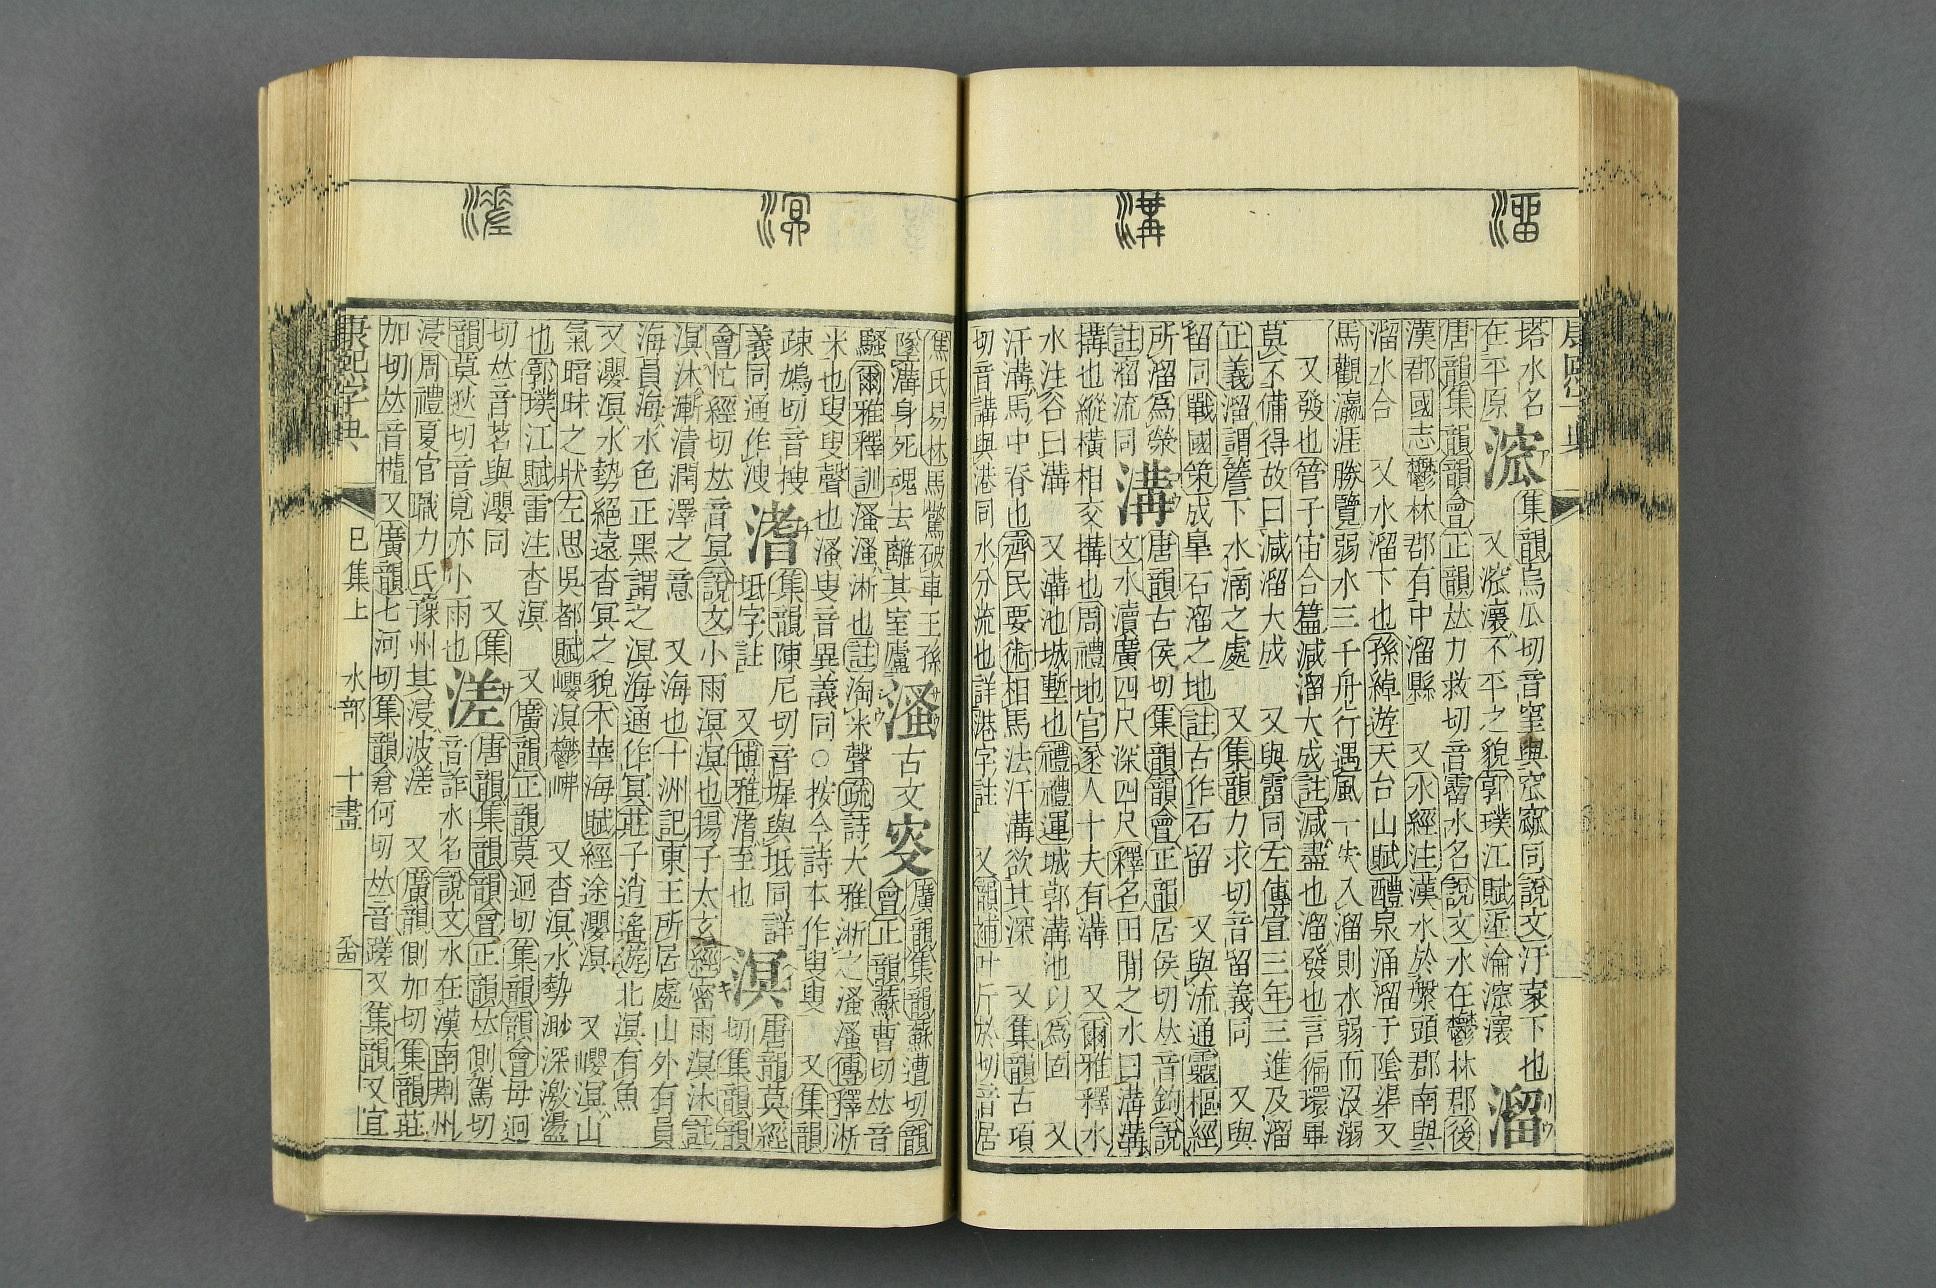 溜
溝
塔水名
在平原
窊
集韻烏瓜切音窪與窊窳同說文汙衺下也
又窊瀼不平之貌郭璞江賦㳌淪窊瀼
溜
リウ
唐韻集韻韻會正韻𠀤力救切音霤水名說文水在鬱林郡後
漢郡國志鬱林郡有中溜縣 又水經注漢水於槃頭郡南與
溜水合 又水溜下也孫綽遊天台山賦醴泉涌溜于陰渠又
馬觀瀛涯勝覽弱水三千舟行遇風一失入溜則水弱而沒溺
又發也管子宙合篇減溜大成註減盡也溜發也言徧環畢
莫不備得故曰減溜大成 又與霤同左傳宣三年三進及溜
正義溜謂簷下水滴之處 又集韻力求切音留義同 又與
留同戰國策成臯石溜之地註古作石留 又與流通靈樞經
所溜爲滎
註溜流同
溝
コウ
唐韻古侯切集韻韻會正韻居侯切𠀤音鉤說
文水瀆廣四尺深四尺釋名田閒之水曰溝溝
搆也縱橫相交搆也周禮地官遂人十夫有溝 又爾雅釋水
水注谷曰溝 又溝池城塹也禮禮運城郭溝池以爲固 又
汗溝馬中脊也齊民要術相馬法汗溝欲其深 又集韻古項
切音講與港同水分流也詳港字註 又韻補叶斤於切音居
溟
溠
焦氏易林馬驚破車王孫
墜溝身死魂去離其室廬
溞
サウ
古文
㛐
廣韻集韻蘇遭切韻
會正韻蘇曹切𠀤音
騷爾雅釋訓溞溞淅也註淘米聲疏詩大雅淅之溞溞傳釋淅
米也叟叟聲也溞叟音異義同○按今詩本作叟叟 又集韻
疎鳩切音搜
義同通作溲
渚
集韻陳尼切音墀與坻同詳
坻字註 又博雅渚至也
溟
唐韻莫經
切集韻韻
會忙經切𠀤音冥說文小雨溟溟也揚子太玄經密雨溟沐註
溟沐漸漬潤澤之意 又海也十洲記東王所居處山外有員
海員海水色正黑謂之溟海通作冥莊子逍遙遊北溟有魚
又瀴溟水勢絕遠杳冥之貌木華海賦經途瀴溟 又㠛溟山
氣暗昧之狀左思吳都賦㠛溟鬱岪 又杳溟水勢渺深激盪
也郭璞江賦雷注杳溟 又廣韻正韻莫迥切集韻韻會母迥
切𠀤音茗與瀴同 又集
韻莫狄切音覓亦小雨也
溠
サ
唐韻集韻韻會正韻𠀤側駕切
音詐水名說文水在漢南荆州
浸周禮夏官職方氏豫州其浸波溠 又廣韻側加切集韻莊
加切𠀤音樝又廣韻七何切集韻倉何切𠀤音蹉又集韻又宜
康熙字典
巳集上
水部
十畫